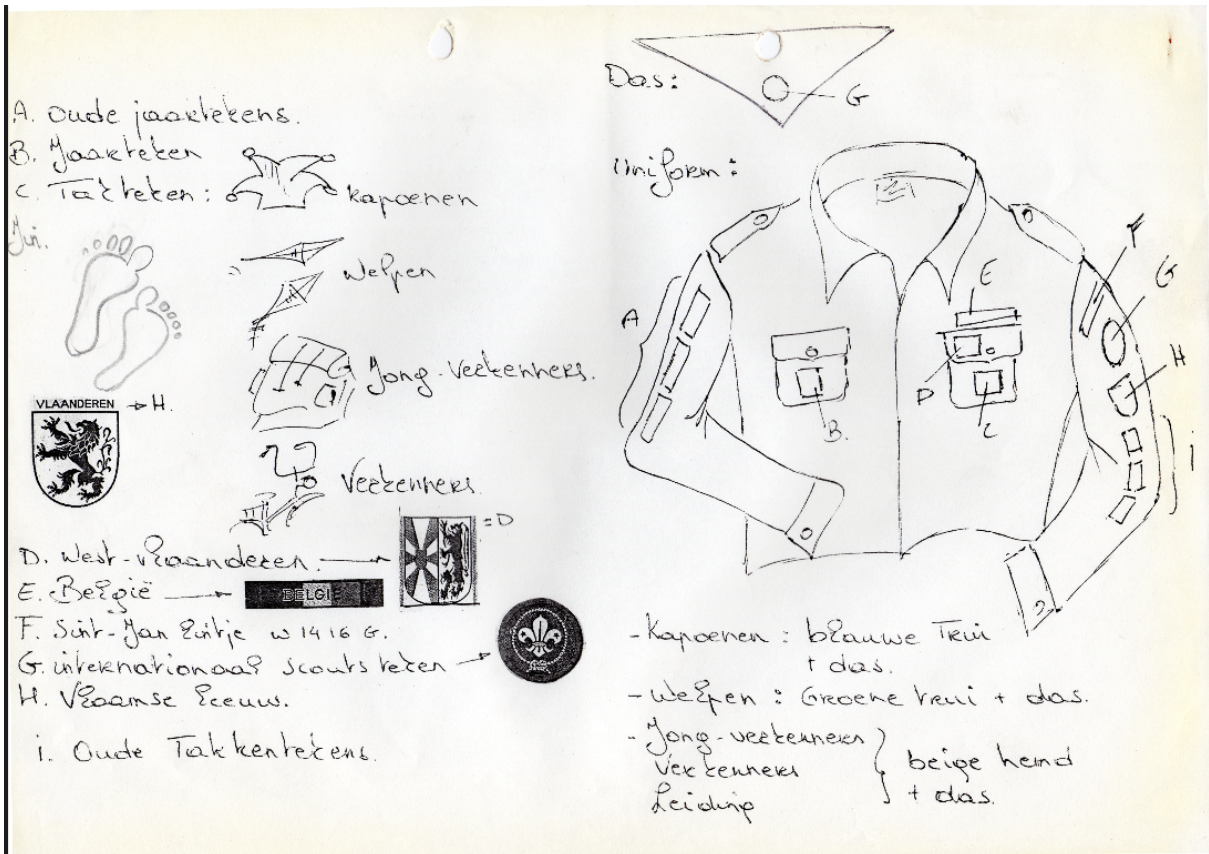 A. Oude jaartekens.
B. Jaarteken
C. Takteken :
kapoenen
Jin.
Welpen
Jong-verkenners.
VLAANDEREN
→ H.
Verkenners
D. West-vlaanderen.
= D
E. België
BELGIE
F. Sint-Jan lintje W 1416 G.
G. internationaal scouts teken
H. Vlaamse leeuw.
i. Oude Takkentekens.
Das:
G
Uniform :
A
B.
C
D
E
F
G
H
i
- Kapoenen : blauwe Trui
+ das.
- Welpen : Groene trui + das.
- Jong-verkenners
Verkenners
Leiding
beige hemd
+ das.